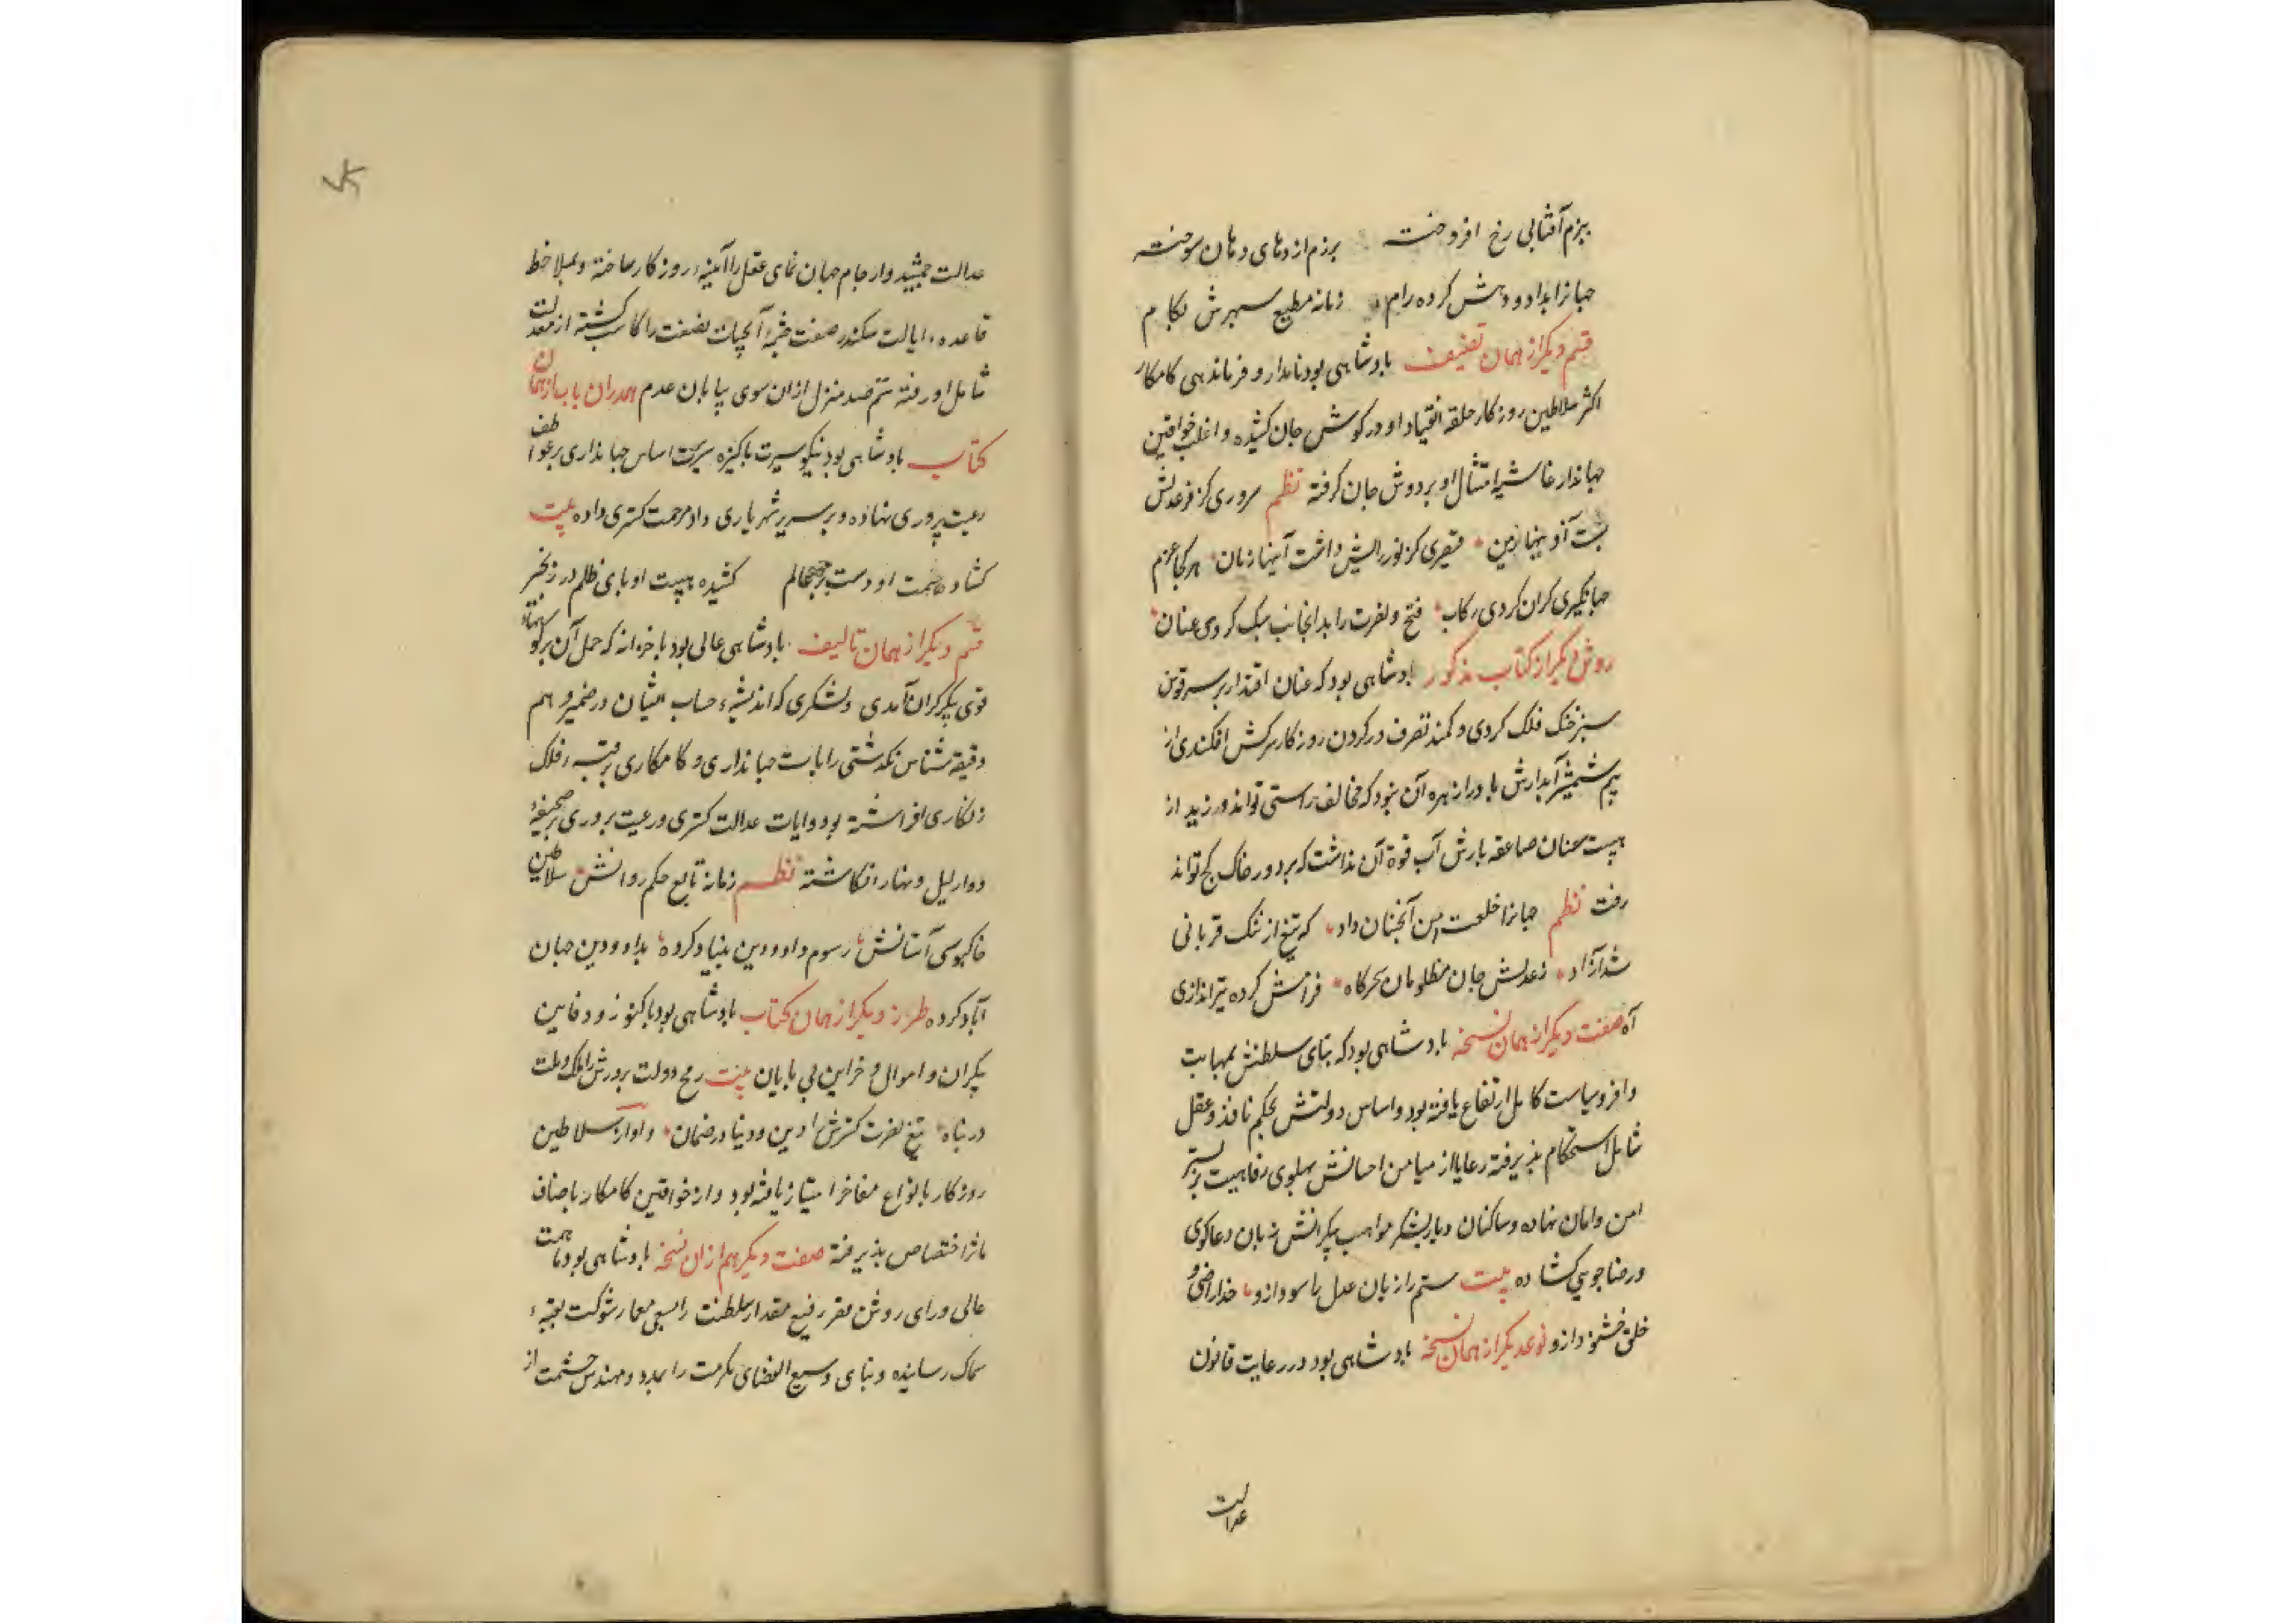 ببزم آفتابی رخ افروخته برزم اژدهای دهان سوخته
جهانرا بداد و دهش کرده رام زمانه مطیع سپهرش بکام
قسم دیگر از همان تصنیف بادشاهی بود نامدار و فرماندهی کامکار
اکثر سلاطین روزکار حلقه انقیاد او در کوش جان کشیده و اغلب خواقین
جهاندار غاشیه امتثال او بر دوش جان کرفته نظم سروری کز فر عدلش
کز نور رایش داشت آئینها زمان هر کجا عزم
جهانکیری کران کردی رکاب فتح و نصرت را بدانجانب سبک کردی عنان
روش دیگر از کتاب مذکور بادشاهی بود که عنان اقتدار بر سر توسن
سبز خنک فلک کردی و کمند تصرف در کردن روزکار سرکش افکندی از
بیم شمشیر آبدارش باد را زهره آن نبود که مخالف راستی تواند ورزید از
هیبت سنان صاعقه بارش آب قوة آن نداشت که بر دور خاک کج تواند
رفت نظم جهانرا خلعت امن آنچنان داد که تیغ از ننک قربانی
شد آزاد ز عدلش جان مظلومان سحرکاه فرامش کرده تیراندازی
آه صفت دیگر از همان نسخه بادشاهی بود که بنای سلطنتش بمهابت
وافر و سیاست کامل ارتفاع یافته بود و اساس دولتش بحکم نافذ و عقل
شامل استحکام پذیرفته رعایا از میامن احسانش پهلوی رفاهیت بر بستر
امن و امان نهاده و ساکنان دیار بشکر مواهب بیکرانش زبان دعاکوی
و رضاجویی کشاده بیت ستم را زبان عدل را سود ازو خدا راضی و
خلق خشنود ازو نوعدیگر از همان نسخه بادشاهی بود در رعایت قانون
عدالت
عدالت جمشیدوار جام جهان نمای عقل را آئینه روزکار ساخته و بملاحظ
قاعده ایالت سکندر صفت چشمه آبحیات نصفت را کاسب کشته از معدلت
شامل او رفته ستم صد منزل از ان سوی بیابان عدم همدران باب از همان
کتاب بادشاهی بود نیکو سیرت پاکیزه سریرت اساس جهانداری بر عواطف
رعیت پروری نهاده و بر سریر شهریاری داد مرحمت کستری داده بیت
کشاده همت او دست کشیده هیبت او پای ظلم در زنجیر
قسم دیگر از همان تالیف بادشاهی عالی بود با خزانه که حمل آن بر کوههای
قوی پیکر کران آمدی و لشکری که اندیشه حساب ایشان در ضمیر وهم
دقیقه شناس نکدشتی رایات جهانداری و کامکاری بر قبه فلک
زنکاری افراشته بود و آیات عدالت کستری و رعیت پروری بر صحیفه
دوار لیل و نهار انکاشته نظم زمانه تابع حکم روانش سلاطین
خاکبوسی آستانش رسوم داد و دین بنیاد کرده بداد و دین جهان
آباد کرده طرز دیگر از همان کتاب بادشاهی بود با کنوز و دفاین
بیکران و اموال و خزاین بی پایان بیت رمح دولت پرورش را ملک و ملت
در پناه تیغ نصرت کسترش را دین و دنیا در ضمان و او از سلاطین
روزکار بانواع مفاخر امتیاز یافته بود و از خواقین کامکار باصناف
ماثر اختصاص پذیرفته صفت دیگر هم از ان نسخه بادشاهی بود با همت
عالی و رای روشن قصر رفیع مقدار سلطنت را بسعی معمار شوکت بقبه
سماک رسانیده و بنای وسیع الفضای مکرمت را بمدد مهندس حشمت از